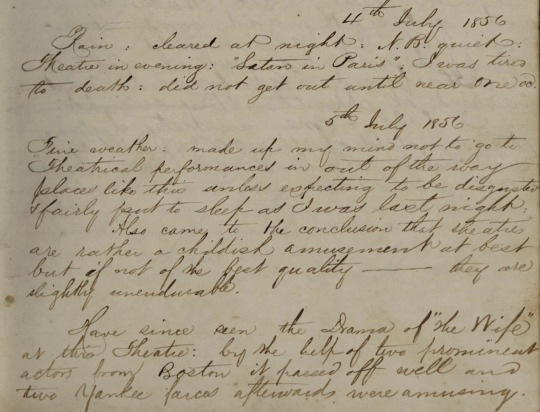 4th July 1856
Rain: cleared at night: N.B. quiet:
Theatre in evening: "Satan in Paris": I was tired
to death: did not get out until near one oc.
5th July 1856
Fine weather: made up my mind not to go to
Theatrical performances in out of the way
places like this unless expecting to be disgusted
& fairly put to sleep as I was last night:
Also came to the conclusion that theatres
are rather a childish amusement at best
but if not of the best quality —— they are
slightly unendurable.
Have since seen the Drama of "the Wife"
at this Theatre: by the help of two prominent
actors from Boston it passed off well and
two Yankee farces afterwards were amusing.